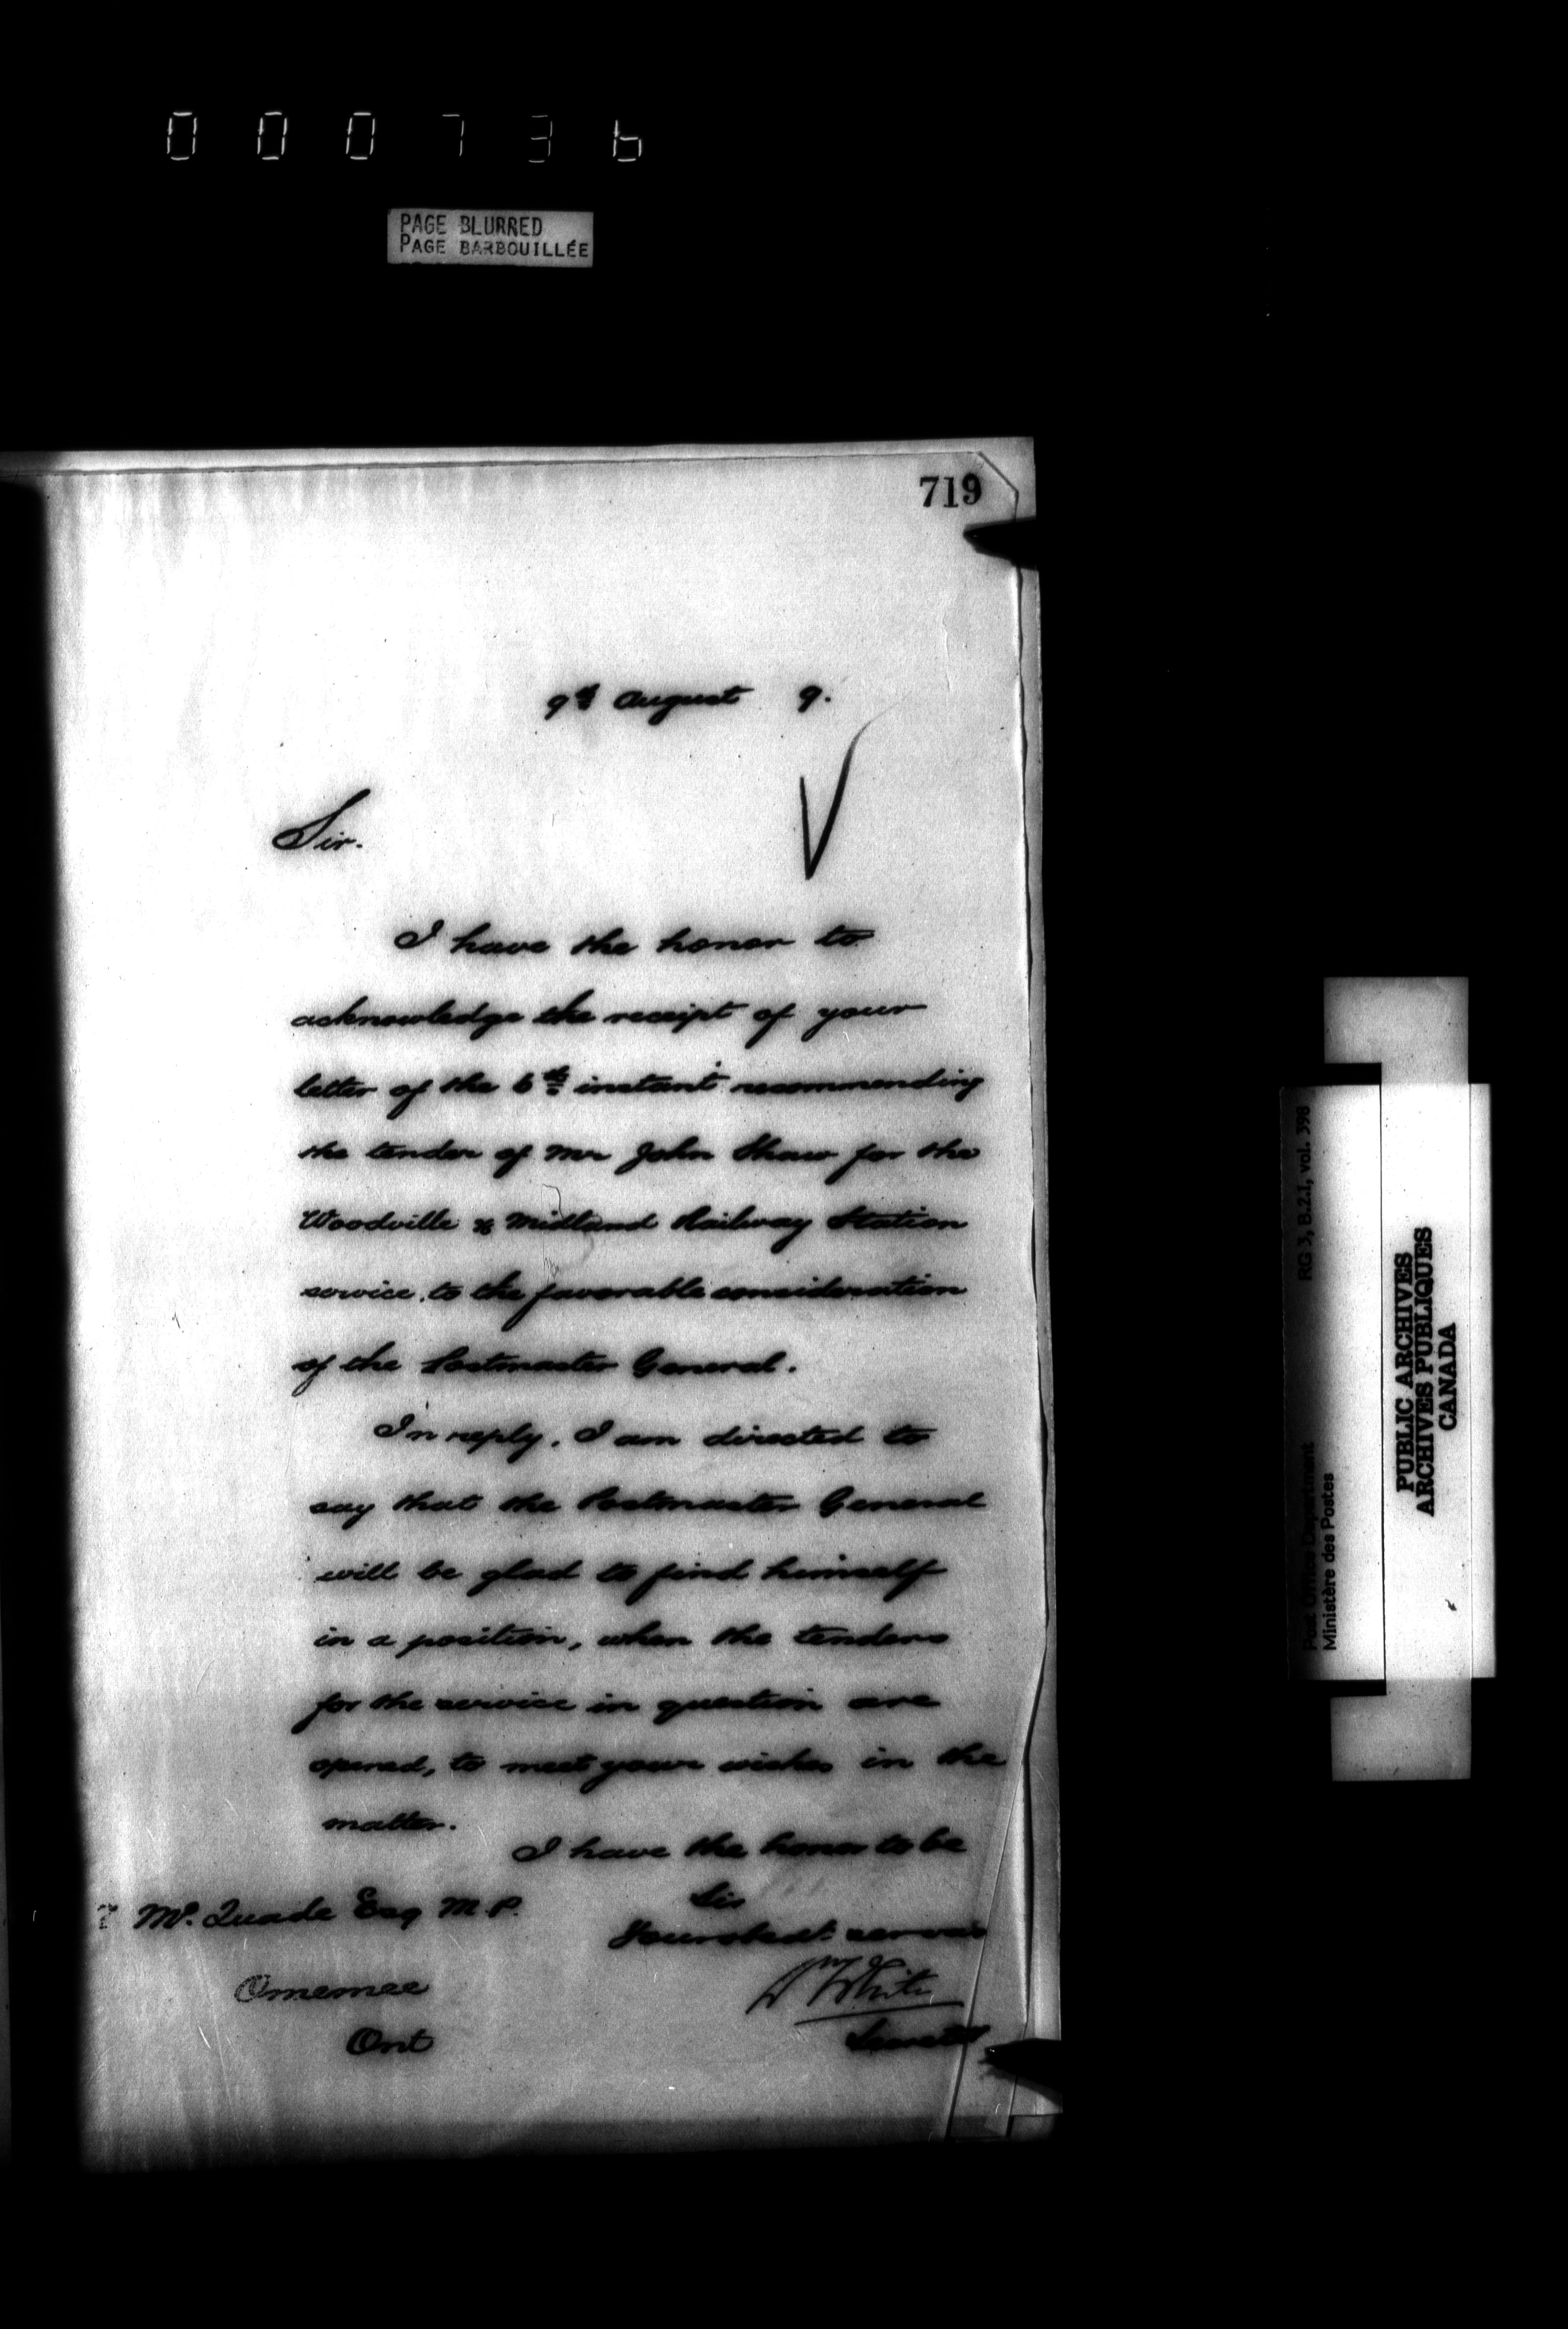 000736
PAGE BLURRED
PAGE BARBOUILLÉE
719
9th August 9.
Sir.
I have the honor to
acknowledge the receipt of your
letter of the 6th instant recommending
the tender of Mr John Shaw for the
Woodville & Midland Railway Station
service, to the favorable consideration
of the Postmaster General.
In reply, I am directed to
say that the Postmaster General
will be glad to find himself
in a position, when the tenders
for the service in question are
opened, to meet your wishes in the
matter.
I have the honor to be
Sir
Your obedt. servant
Wm White
Secretary
McQuade Esq M.P.
Omemee
Ont
Post Office Department RG 3, B.2.I, vol. 398
Ministère des Postes
PUBLIC ARCHIVES
ARCHIVES PUBLIQUES
CANADA